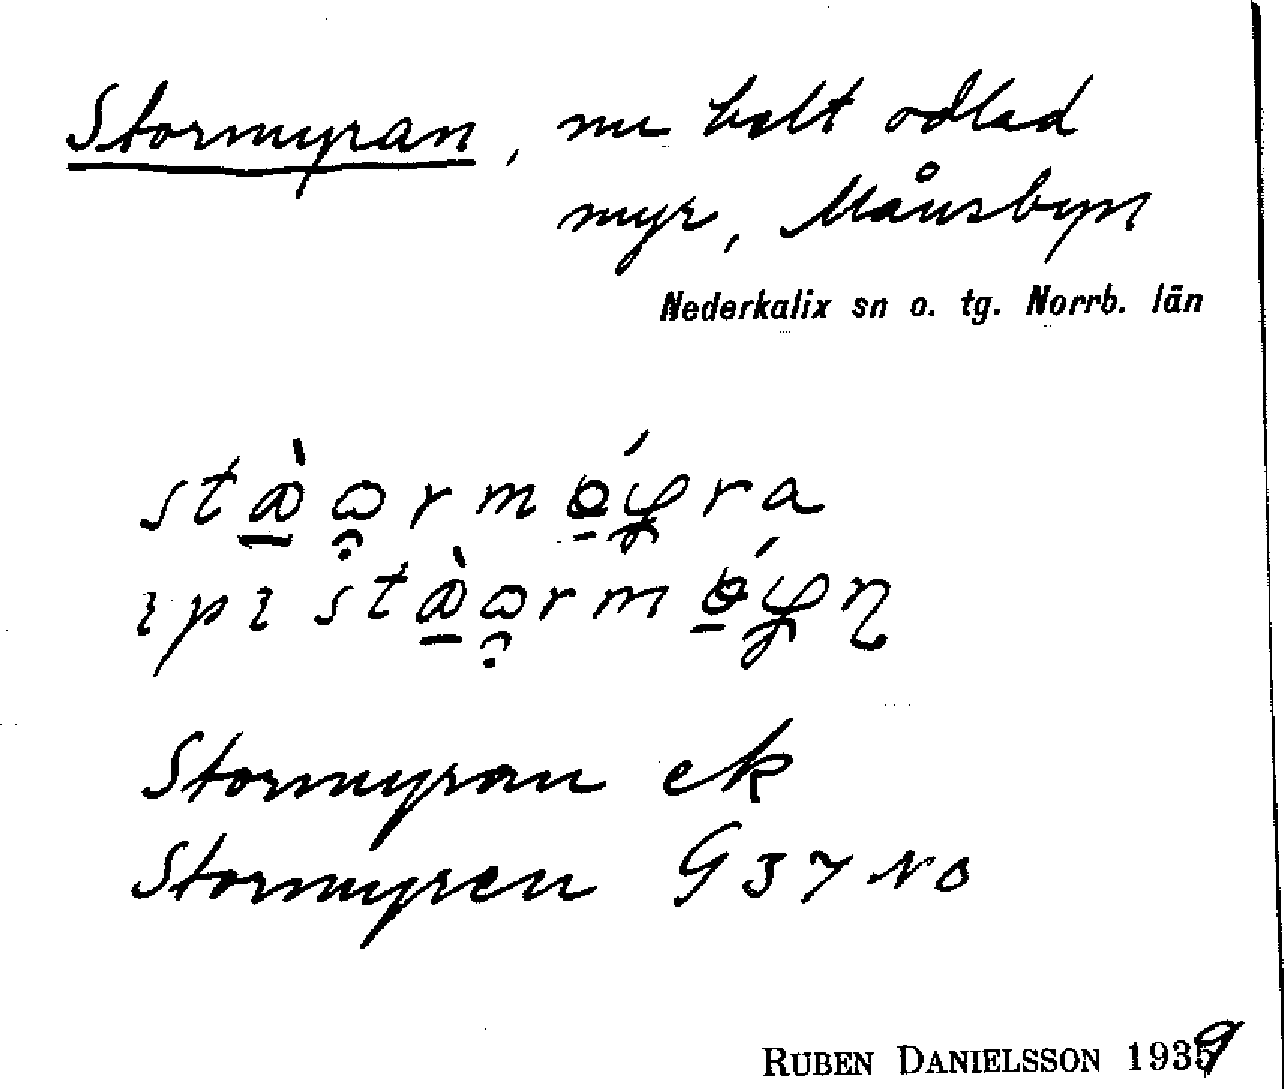 Stormyran, nu helt odlad
myr, Månsbyn
Nederkalix sn o. tg. Norrb. län
Stormyran ek
Stormyren G 37 NO
RUBEN DANIELSSON 1939